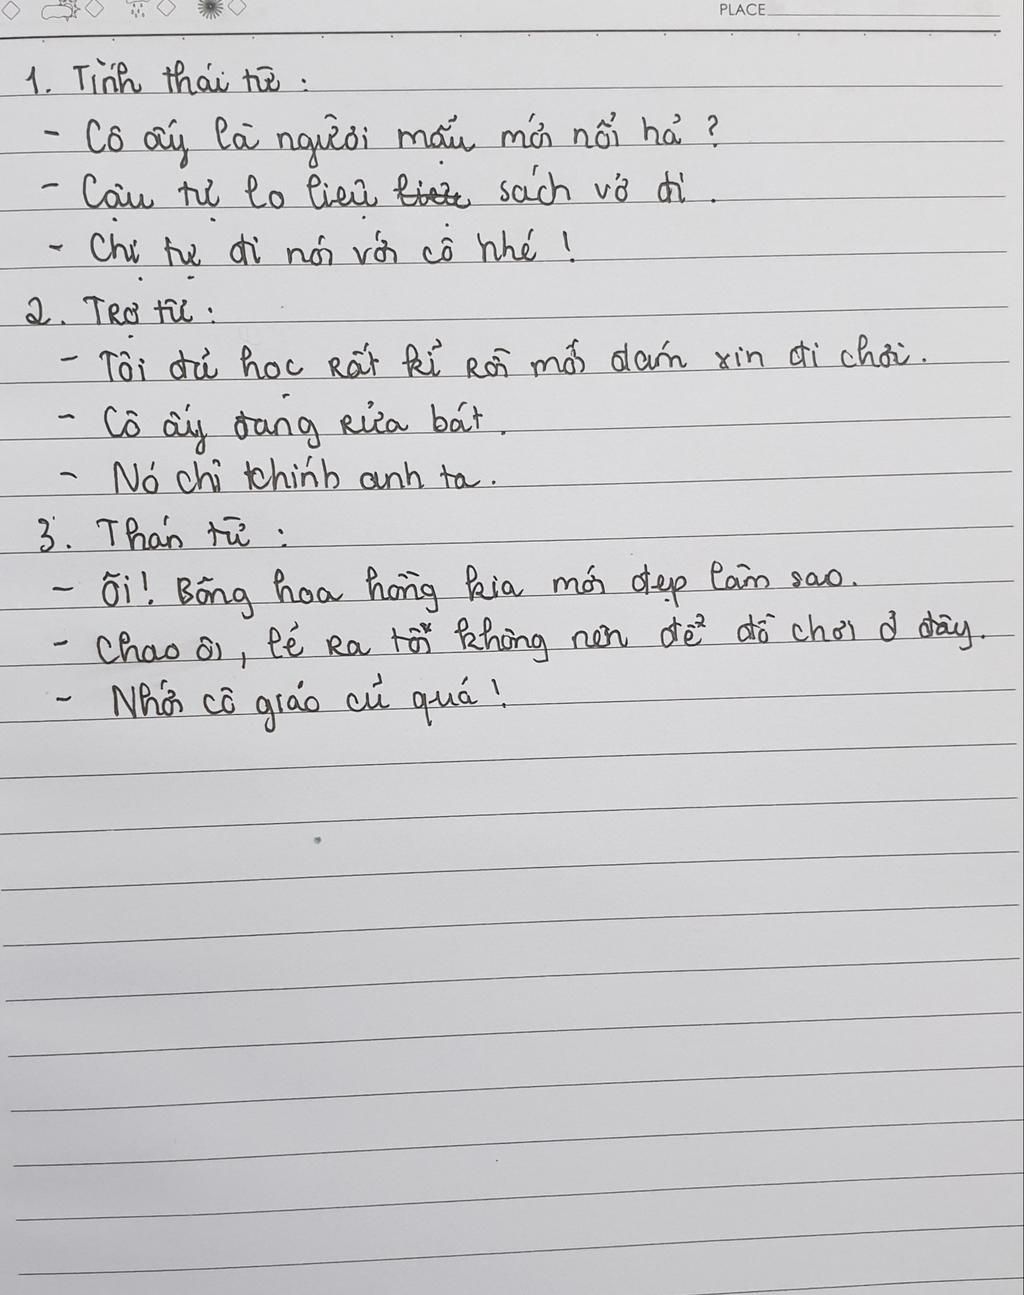 PLACE
1. Tình thái từ :
- Cô ấy là người mẫu mới nổi hả ?
- Cậu tự lo liệu sách vở đi .
- Chị tự đi nói với cô nhé !
2. Trợ từ :
- Tôi đã học rất kĩ rồi mới dám xin đi chơi .
- Cô ấy đang rửa bát .
- Nó chỉ thính anh ta .
3. Thán từ :
- Ôi! Bông hoa hồng kia mới đẹp làm sao.
- Chao ôi, lẽ ra tôi không nên để đồ chơi ở đây.
- Nhớ cô giáo cũ quá !